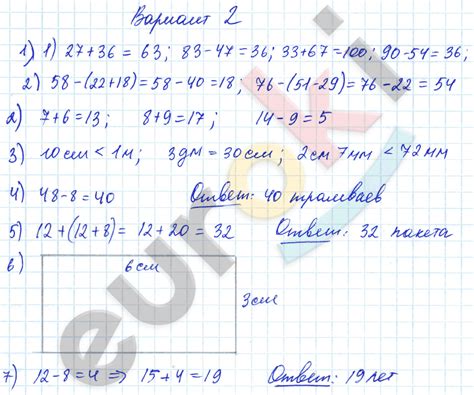 Вариант 2
1) 1) 27+36 = 63; 83-47=36; 33+67=100; 90-54=36;
2) 58-(22+18)=58-40=18; 76-(51-29)=76-22=54
2) 7+6=13; 8+9=17; 14-9=5
3) 10см < 1м; 3дм=30см; 2см 7мм < 72мм
4) 48-8=40 Ответ: 40 трамваев
5) 12+(12+8)= 12+20=32 Ответ: 32 пакета
6)
6см
3см
7) 12-8=4 => 15+4=19 Ответ: 19 лет
euroki